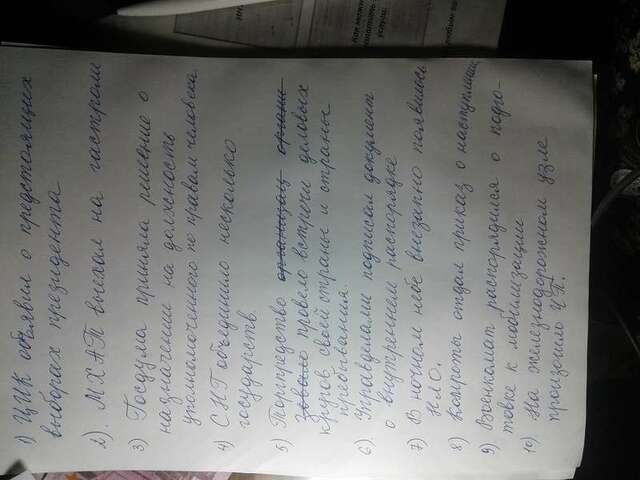 1) ЦИК объявил о предстоящих
выборах президента
2). МХАТ выехал на гастроли
3) Госдума приняла решение о
назначении на должность
уполномоченного по правам человека.
4) СНГ объединило несколько
государств.
5) Торгпредство организац органи
зовало провело встречи деловых
кругов своей страны и страны
пребывания.
6). Управделами подписал документ
о внутреннем распорядке
7) В ночном небе внезапно появилось
НЛО.
8) Комроты отдал приказ о наступлении
9) Военкомат распорядился о подго-
товке к мобилизации
10). На железнодорожном узле
произошло ЧП.
Как можно
услуги: